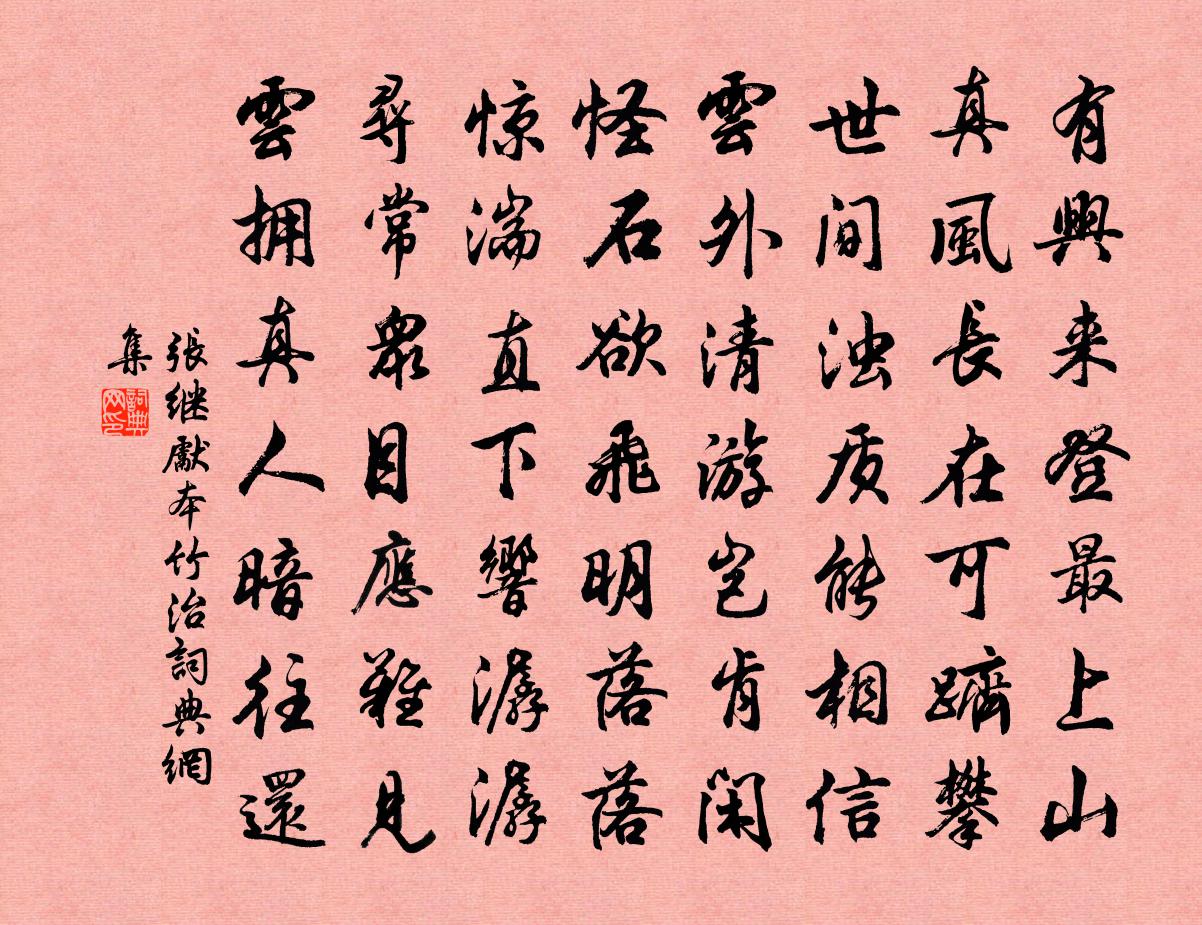 有興来登最上山
真風長在可躋攀
世间浊质能相信
雲外清游岂肯闲
怪石欲飛明落落
惊湍直下響潺潺
尋常眾目應難見
雲拥真人暗往還
張继獻本竹治詞典網
集
詞典网印